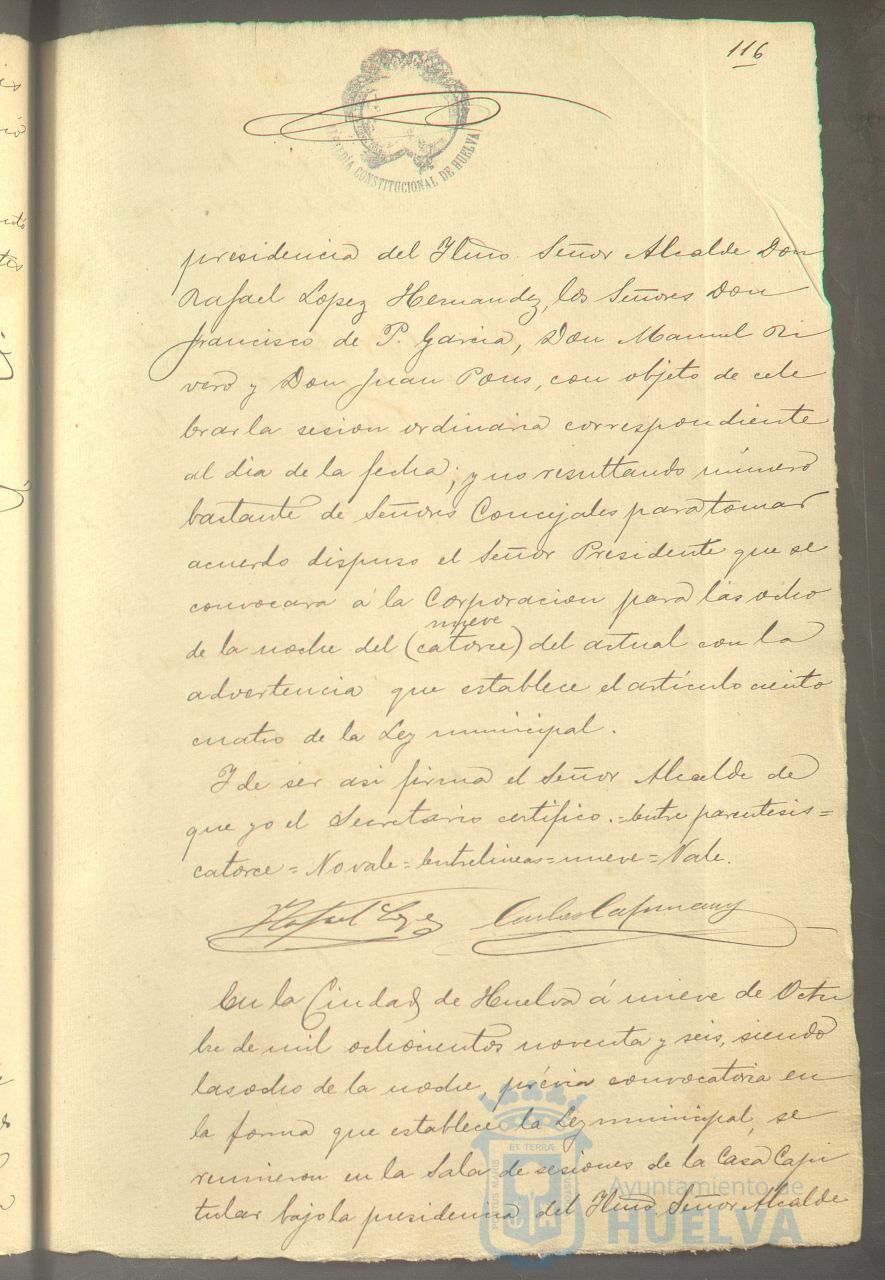 116
ALCALDÍA CONSTITUCIONAL DE HUELVA
presidencia del Ylmo. Señor Alcalde Don
Rafael Lopez Hernandez, los Señores Don
Francisco de P. Garcia, Don Manuel Ri
vero y Don Juan Pons, con objeto de cele
brar la sesion ordinaria correspondiente
al dia de la fecha; y no resultando número
bastante de Señores Concejales para tomar
acuerdo dispuso el Señor Presidente que se
convocara á la Corporacion para las ocho
nueve
de la noche del (catorce) del actual con la
advertencia que establece el artículo ciento
cuatro de la Ley municipal.
Y de ser asi firma el Señor Alcalde de
que yo el Secretario certifico.=Entre parentesis=
catorce=No vale=Entrelineas=nueve=Vale.
Rafael Lopez Carlos Capmany
En la Ciudad de Huelva á nueve de Octu
bre de mil ochocientos noventa y seis, siendo
las ocho de la noche, prévia convocatoria en
la forma que establece la Ley municipal, se
reunieron en la Sala de sesiones de la Casa Capi
tular bajo la presidencia del Ylmo. Señor Alcalde
PORTUS MARIS ET TERRÆ CUSTODIA
Ayuntamiento de
HUELVA